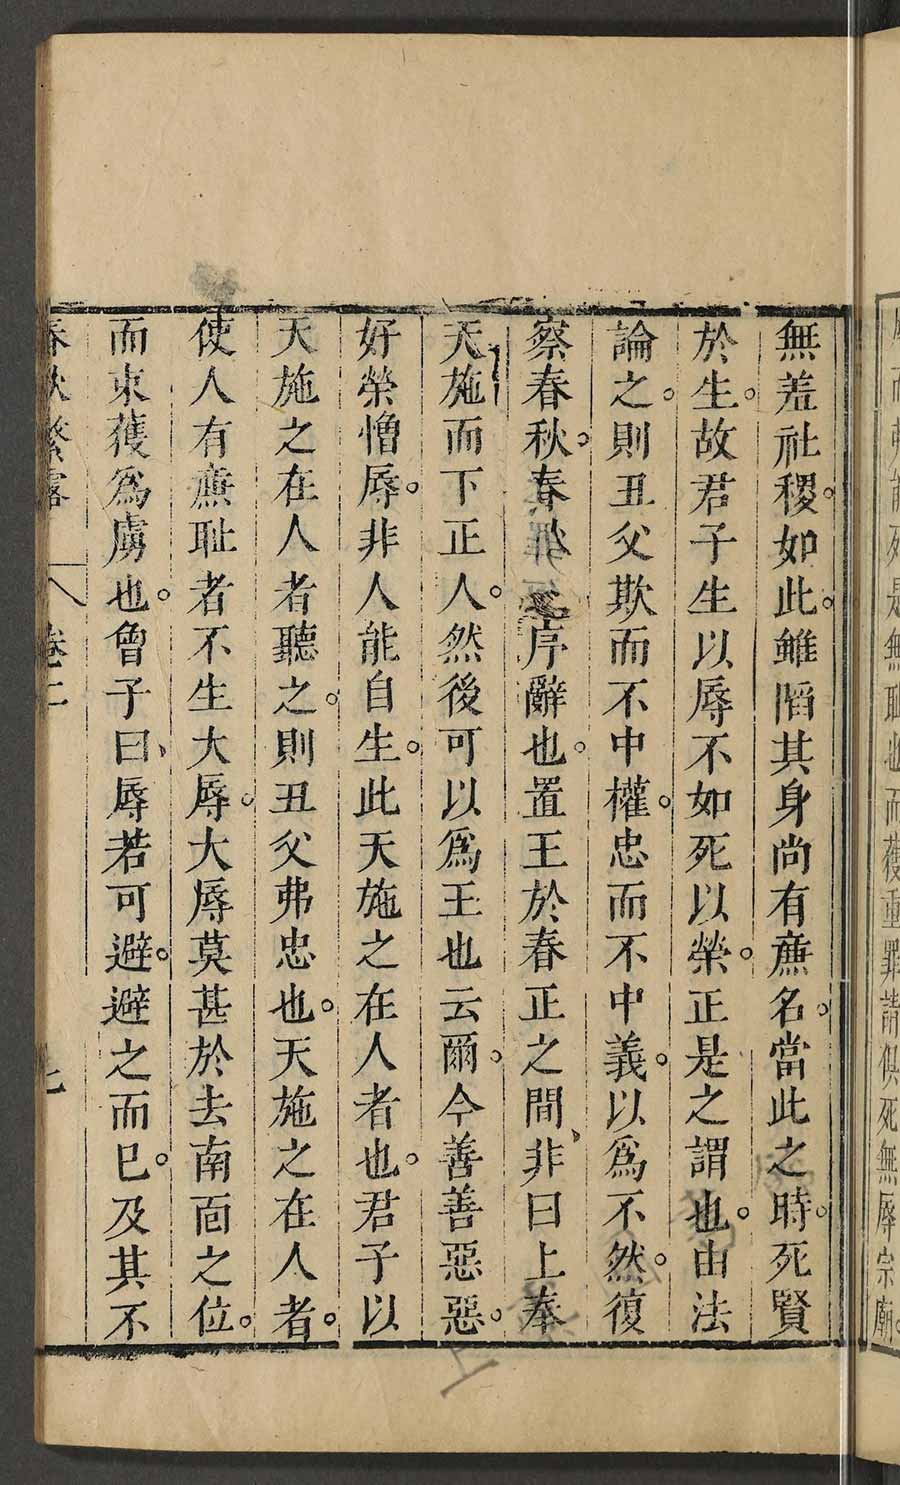 廟而不能死是無耻也而獲重罪請俱死無辱宗廟。
無羞社稷。如此。雖陷其身尚有廉名。當此之時。死賢
於生。故君子生以辱不如死以榮。正是之謂也。由法
論之。則丑父欺而不中權。忠而不中義。以為不然。復
察春秋。春秋之序辭也。置王於春正之間、非曰上奉
天施而下正人。然後可以為王也云爾。今善善惡惡。
好榮憎辱。非人能自生。此天施之在人者也。君子以
天施之在人者聽之。則丑父弗忠也。天施之在人者。
使人有廉耻者不生大辱。大辱莫甚於去南面之位。
而束獲為虜也。曾子曰、辱若可避。避之而已。及其不
春秋繁露 卷二 七